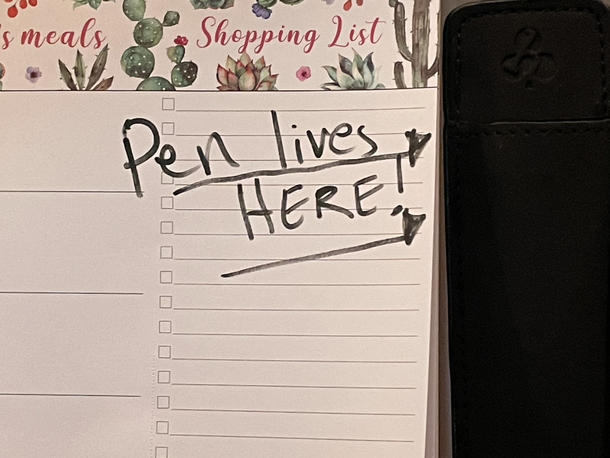 s meals
Shopping List
Pen lives
HERE!